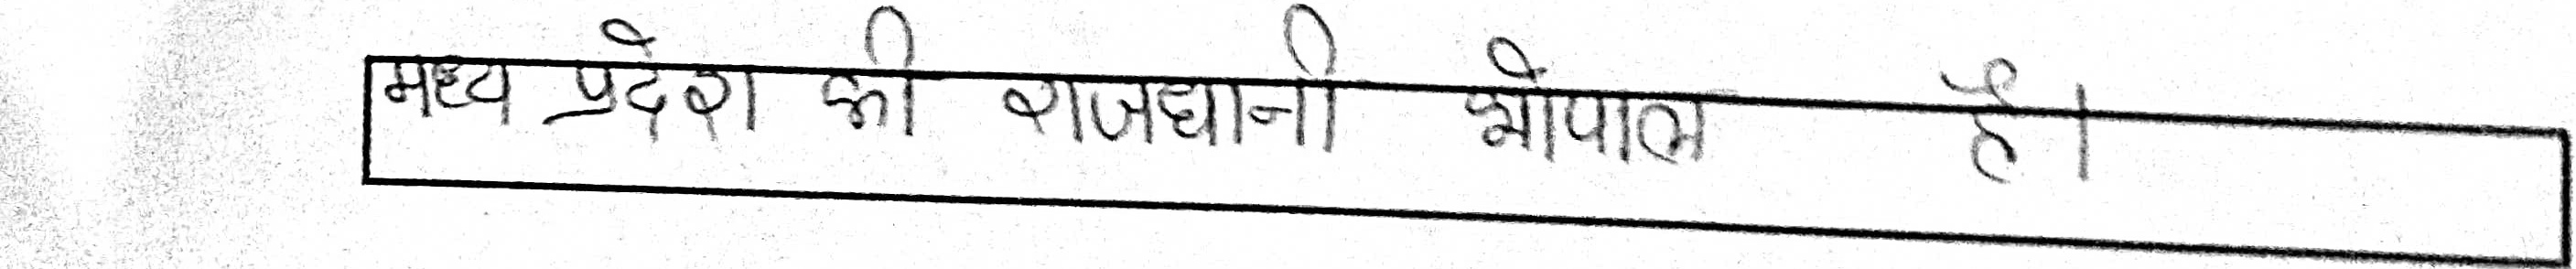 मध्य प्रदेश की राजधानी भोपाल है।